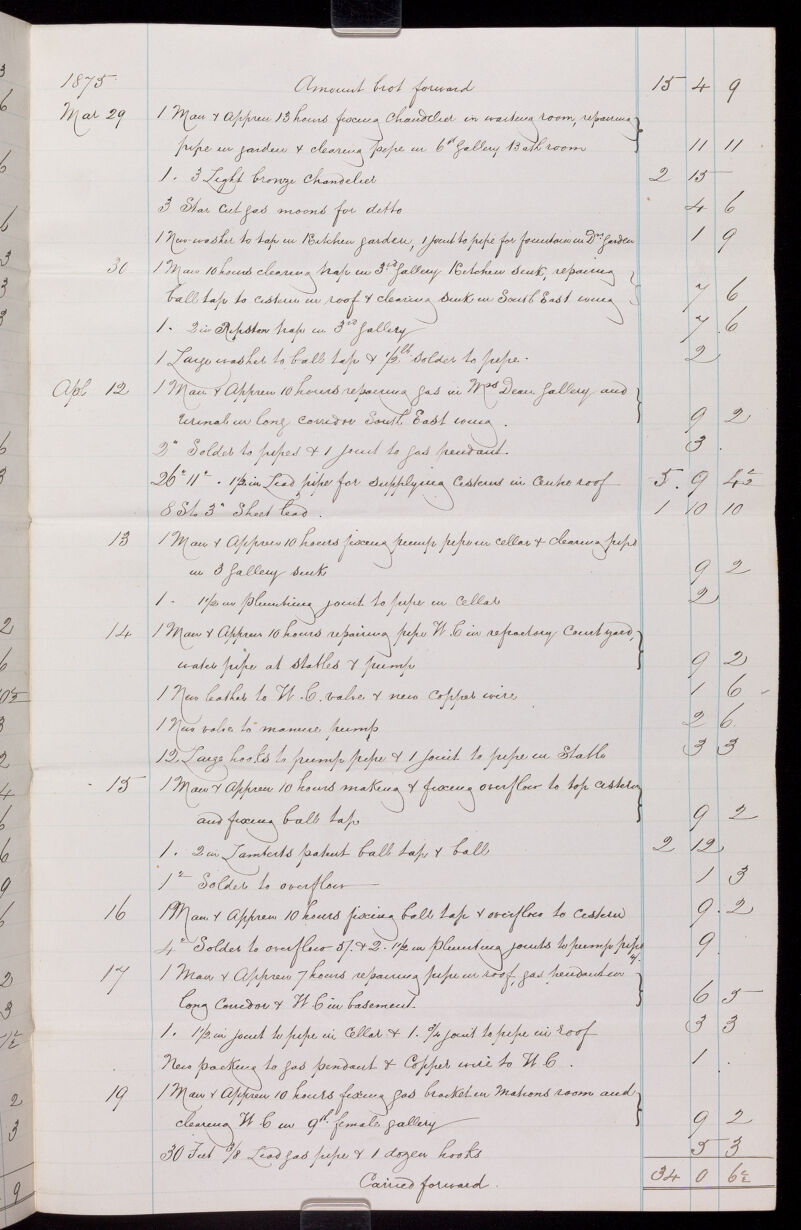 1875 Amount brot forward 15 4 9
Mar 29 1 Man & Appren 13 hours fixing Chandelier in waiting room, repairing
pipe in garden & clearing pipe in 6th Gallery Bath room 11 11
1. 3 Light bronze Chandelier 2 15
3 Star Cut gas moons for ditto 4 6
1 New washer to tap in Kitchen garden, 1 joint to pipe for fountain in Drs Garden 1 9
30 1 Man 10 hours clearing trap in 3rd Gallery Kitchen sink, repairing
ball tap to cistern in roof & clearing sink in South East wing 7 6
1. 2 in trap in 3rd Gallery 7 6
1 Large washer to ball tap & 1/2 lb solder to pipe. 2
Apl 12 1 Man & Appren 10 hours repairing gas in Mrs Dean Gallery and
Urinal in long corridor South East wing. 9 2
2" Solder to pipes & 1 joint to gas pendant. 3
26" 11" . 1½ in Lead pipe for supplying Cisterns in Centre roof 5 9 4½
8 Sts 3" Sheet lead. 1 10 10
13 1 Man & Appren 10 hours fixing pump pipe in cellar & clearing pipe
in 3 Gallery sink 9 2
1 - 1½ in Plumbing joint to pipe in Cellar 2
14 1 Man & Appren 10 hours repairing pipe W.C in refractory Court yard
water pipe at stables & pump 9 2
1 New leather to W.C. valve & new Copper wire 1 6
1 New valve to manure pump 2 6
12 Large hooks to pump pipe & 1 Joint to pipe in Stable 3 3
15 1 Man & Appren 10 hours making & fixing overflow to top cistern
and fixing ball tap 9 2
1. 2 in Lamberts patent ball tap & ball 2 12
1" Solder to overflow 1 3
16 1 Man & Appren 10 hours fixing ball tap & overflow to Cistern 9 2
4" Solder to overflow 5/. & 2. 1½ in plumbing joints to pump pipe 4/. 9
17 1 Man & Appren 7 hours repairing pipe in roof, gas pendant in
long Corridor & W C in basement. 6 5
1. 1½ in joint to pipe in Cellar & 1. 3/4 joint to pipe in roof 3 3
New packing to gas pendant & Copper wire to W C. 1
19 1 Man & Appren 10 hours fixing gas bracket in Matrons room and
clearing W C in 9th female gallery 9 2
30 Feet 3/8 Lead gas pipe & 1 dozen hooks 5 3
Carried forward. 34 0 6½